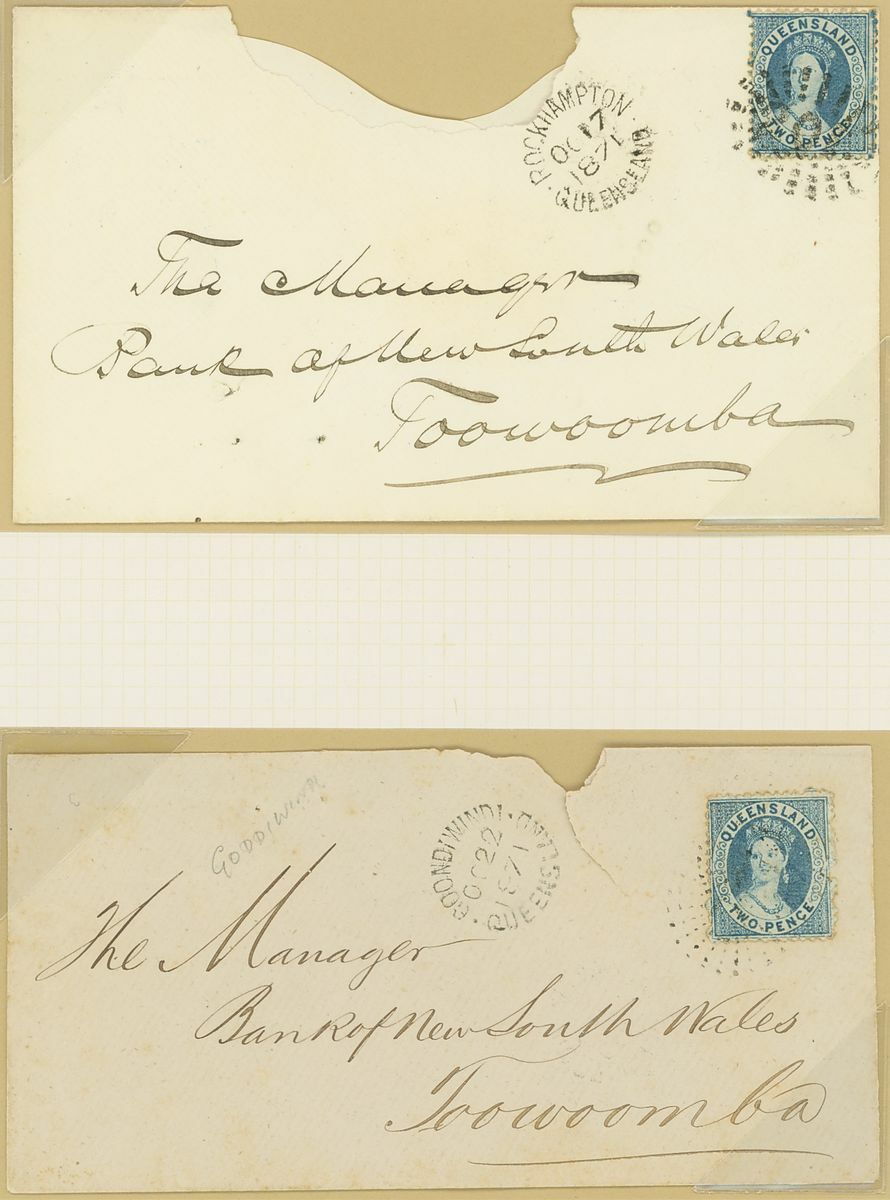 QUEENSLAND
TWO PENCE
ROCKHAMPTON
OC 17
1871
QUEENSLAND
The Manager
Bank of New South Wales
Toowoomba
QUEENSLAND
TWO PENCE
GOONDIWINDI
OC 22
1871
QUEENSLAND
GODDIWINDI
The Manager
Bank of New South Wales
Toowoomba